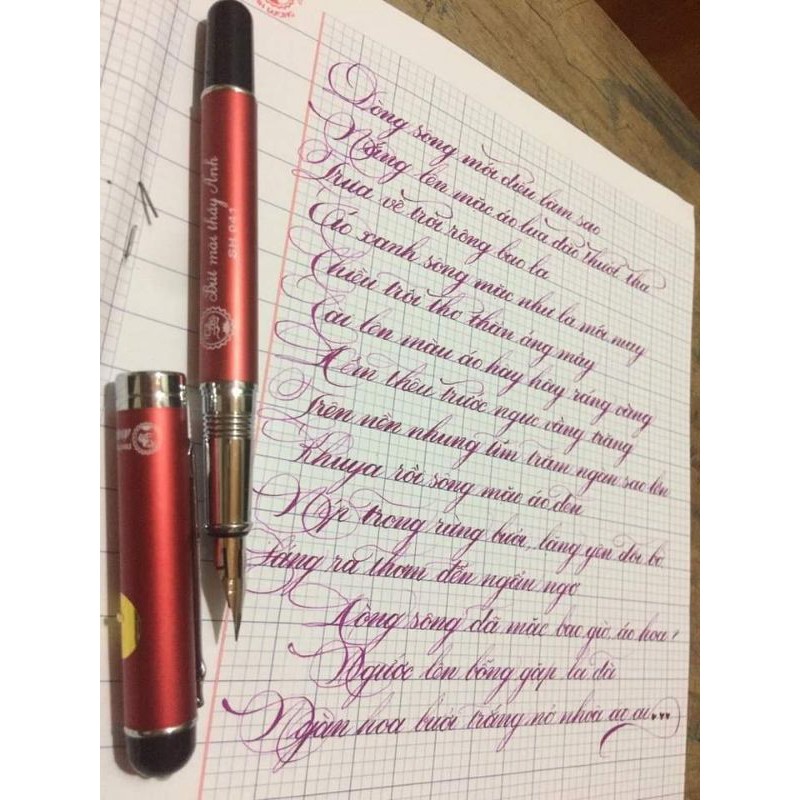 Dòng sông mới điệu làm sao
Nắng lên mặc áo lụa đào thướt tha
Trưa về trời rộng bao la
Áo xanh sông mặc như là mới may
Chiều trôi thơ thẩn áng mây
Cài lên màu áo hây hây ráng vàng
Đêm thêu trước ngực vầng trăng
Trên nền nhung tím trăm ngàn sao lên
Khuya rồi sông mặc áo đen
Nép trong rừng bưởi, lặng yên đôi bờ
Sáng ra thơm đến ngẩn ngơ
Dòng sông đã mặc bao giờ, áo hoa?
Ngước lên bỗng gặp la đà
Ngàn hoa bưởi trắng nở nhòa áo ai...
Bút mài thầy Ánh
SH 041